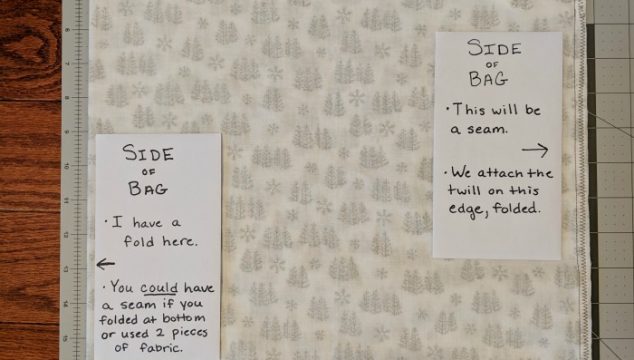 SIDE
OF
BAG
· I have a
fold here.
←
· You could have
a seam if you
folded at bottom
or used 2 pieces
of fabric.
SIDE
OF
BAG
· This will be
a seam.
→
· We attach the
twill on this
edge, folded.